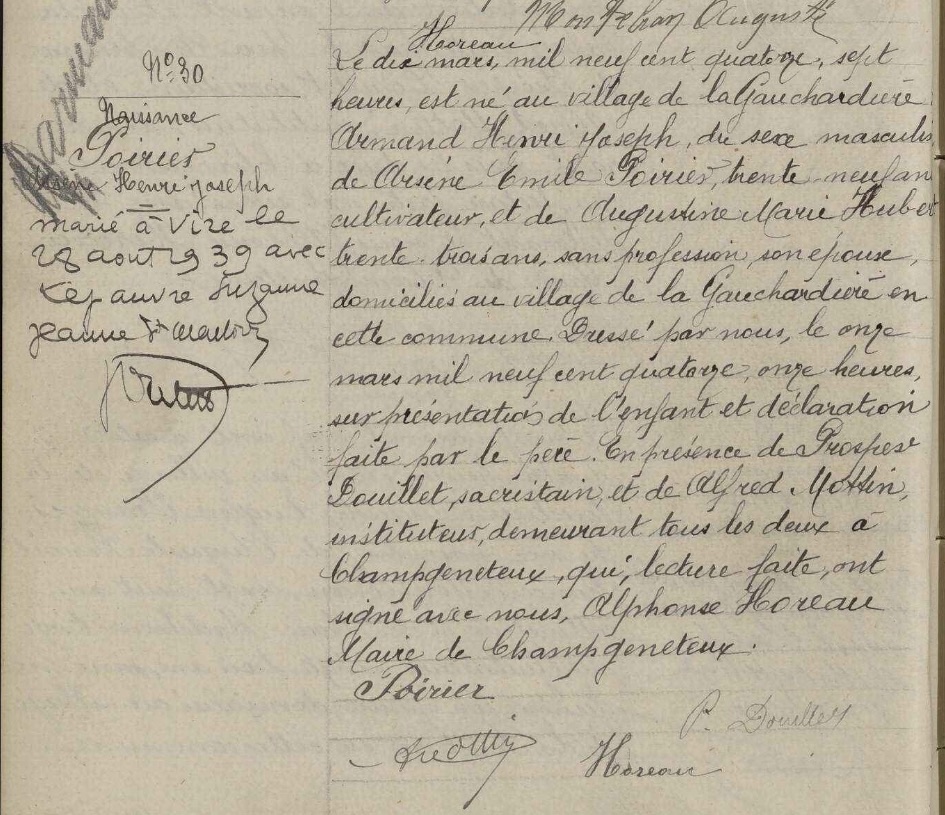 Montehan Auguste
Horeau
N° 30
Naissance
Poirier
Henri Joseph
marié à Vire le
28 aout 1939 avec
Lepauvre Suzanne
Jeanne
Le dix mars, mil neuf cent quatorze, sept
heures, est né au village de la Gauchardière
Armand Henri Joseph, du sexe masculin
de Arsène Emile Poirier, trente neuf an
cultivateur, et de Augustine Marie Hubert
trente-trois ans, sans profession, son épouse,
domiciliés au village de la Gauchardière en
cette commune. Dressé par nous, le onze
mars mil neuf cent quatorze, onze heures,
sur présentation de l'enfant et déclaration
faite par le père. En présence de Prosper
Douillet, sacristain, et de Alfred Mottin,
instituteur, demeurant tous les deux à
Champgeneteux, qui, lecture faite, ont
signé avec nous, Alphonse Horeau
Maire de Champgeneteux.
Poirier
P. Douillet
Horeau